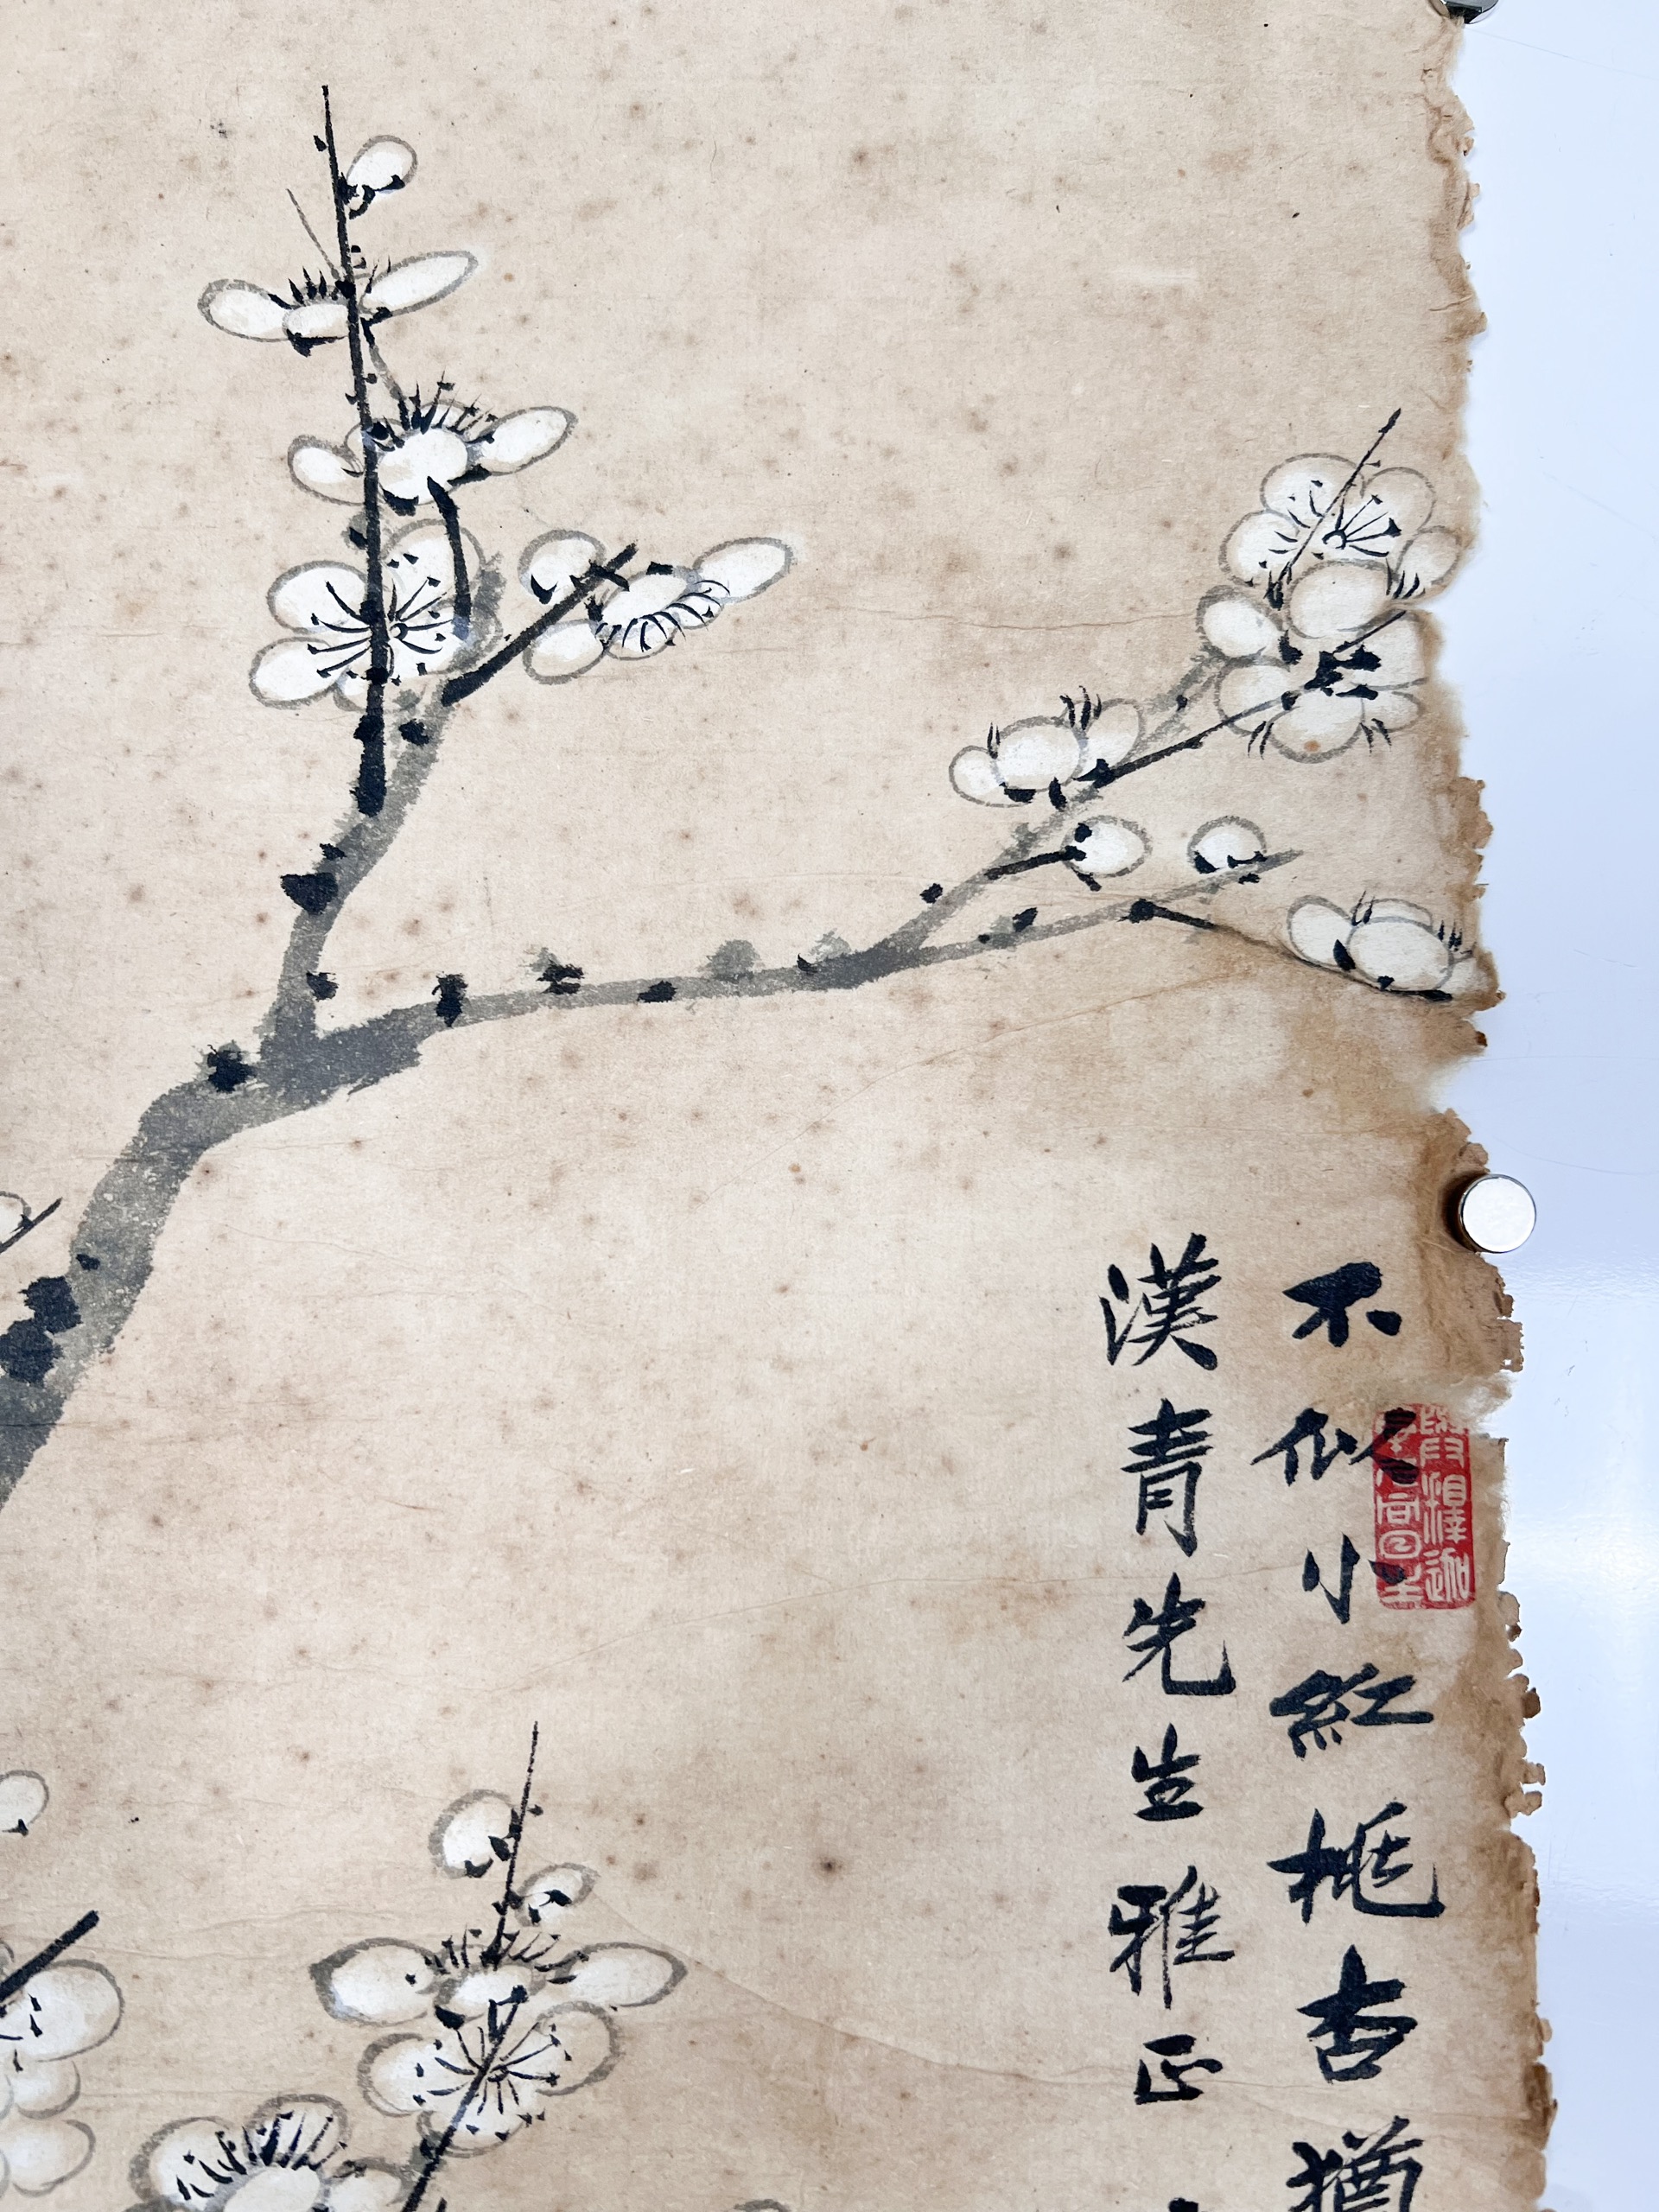 不似小紅桃杏猶
漢青先生雅正